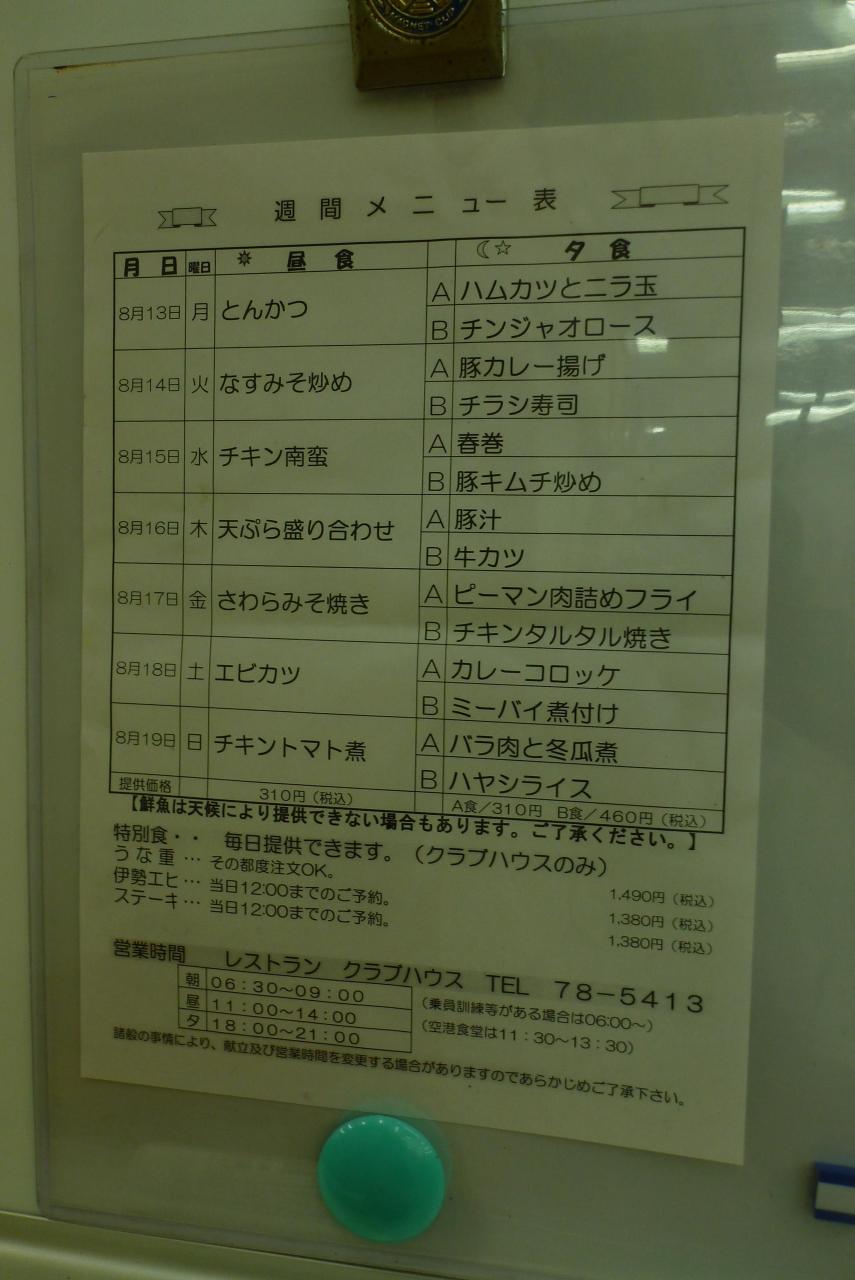 MAGNET CUP
週間メニュー表
月 日 曜日 昼 食 夕 食
8月13日 月 とんかつ A ハムカツとニラ玉
B チンジャオロース
8月14日 火 なすみそ炒め A 豚カレー揚げ
B チラシ寿司
8月15日 水 チキン南蛮 A 春巻
B 豚キムチ炒め
8月16日 木 天ぷら盛り合わせ A 豚汁
B 牛カツ
8月17日 金 さわらみそ焼き A ピーマン肉詰めフライ
B チキンタルタル焼き
8月18日 土 エビカツ A カレーコロッケ
B ミーバイ煮付け
8月19日 日 チキントマト煮 A バラ肉と冬瓜煮
B ハヤシライス
提供価格 310円（税込） A食／310円 B食／460円（税込）
【鮮魚は天候により提供できない場合もあります。ご了承ください。】
特別食・・ 毎日提供できます。（クラブハウスのみ）
うな重… その都度注文OK。 1,490円（税込）
伊勢エビ… 当日12:00までのご予約。 1,380円（税込）
ステーキ… 当日12:00までのご予約。 1,380円（税込）
営業時間 レストラン クラブハウス TEL 78-5413
朝 06：30～09：00 （乗員訓練等がある場合は06:00～）
昼 11：00～14：00 （空港食堂は11：30～13：30）
夕 18：00～21：00
諸般の事情により、献立及び営業時間を変更する場合がありますのであらかじめご了承下さい。